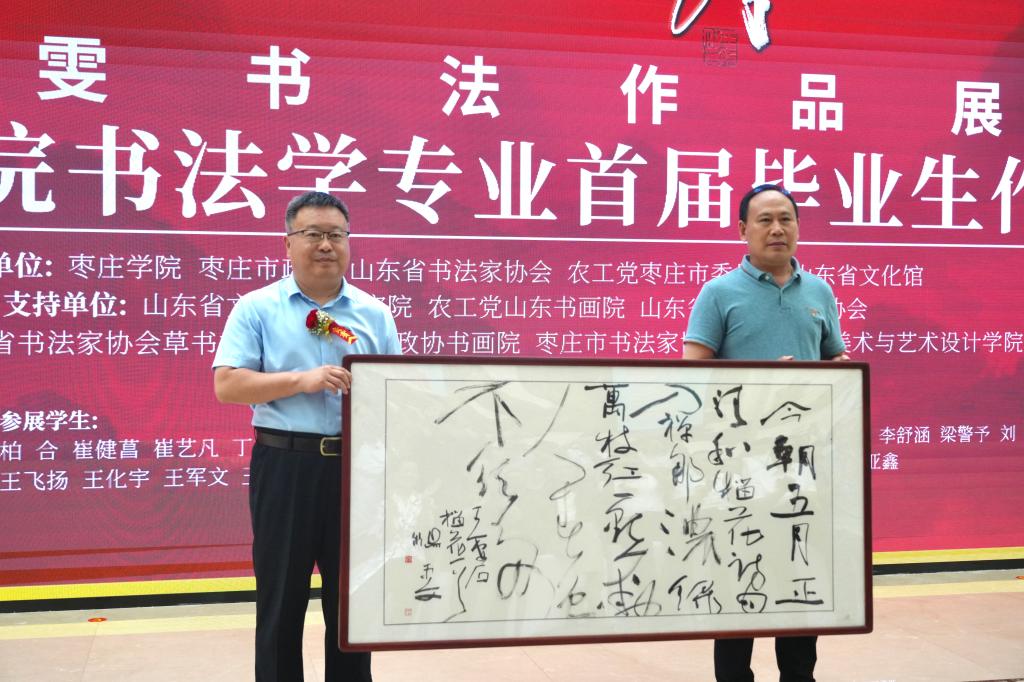 雯书法作品展
院书法学专业首届毕业生作
单位：枣庄学院 枣庄市政 山东省书法家协会 农工党枣庄市委 山东省文化馆
支持单位：山东省文 院 农工党山东书画院 山东省 协会
省书法家协会草书 政协书画院 枣庄市书法家协 美术与艺术设计学院
参展学生：
柏合 崔健菖 崔艺凡 丁 李舒涵 梁警予 刘
王飞扬 王化宇 王军文 王 亚鑫
今朝五月正
清和榴花诗句
入禅那浓绿
萬枝红一點動
人春色
不须多